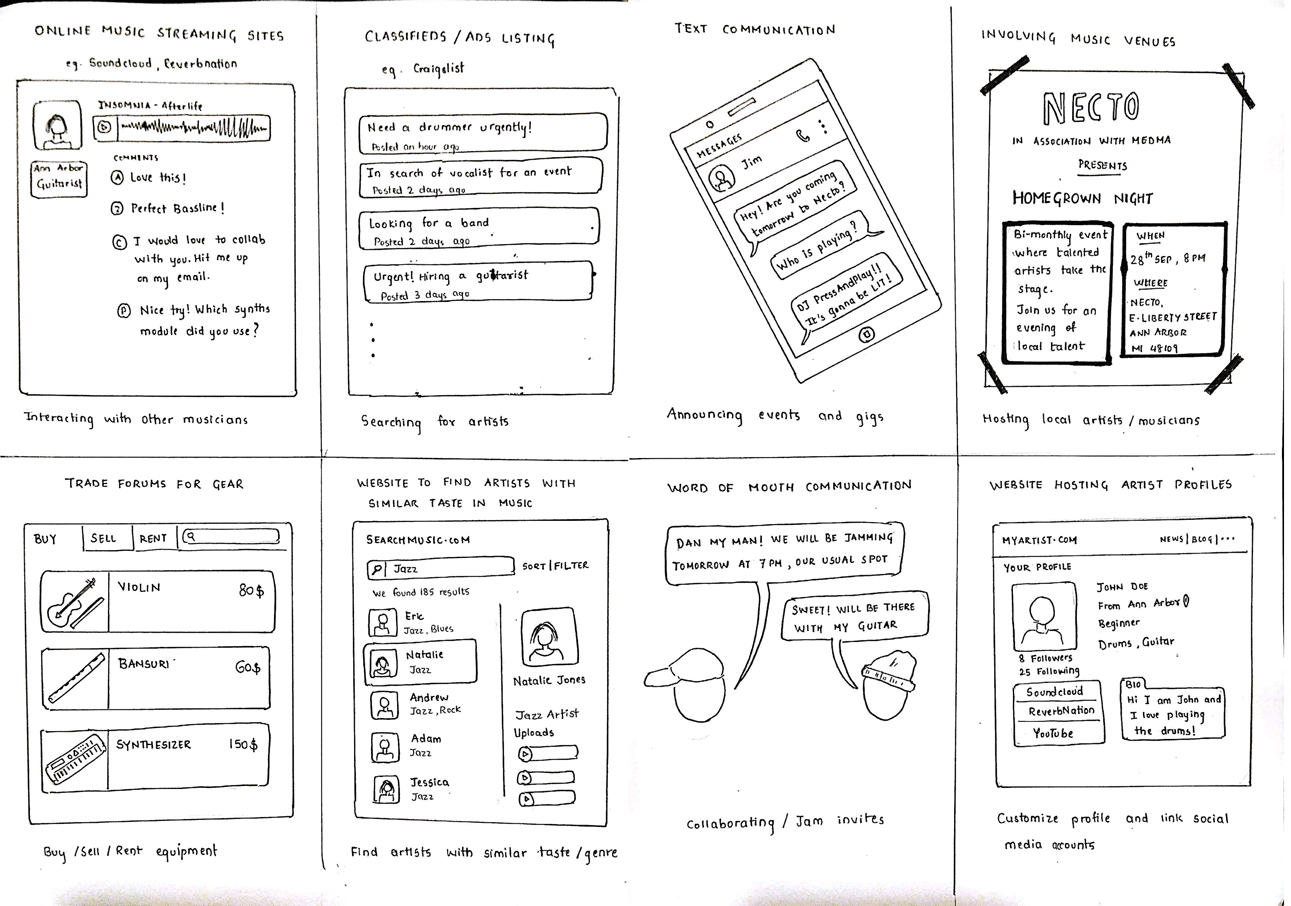 ONLINE MUSIC STREAMING SITES
eg. Soundcloud, Reverbnation
INSOMNIA - Afterlife
Ann Arbor
Guitarist
COMMENTS
A Love this!
J Perfect Bassline!
C I would love to collab
with you. Hit me up
on my email.
P Nice try! Which synths
module did you use?
Interacting with other musicians
CLASSIFIEDS / ADS LISTING
eg. Craigslist
Need a drummer urgently!
Posted an hour ago
In search of vocalist for an event
Posted 2 days ago
Looking for a band
Posted 2 days ago
Urgent! Hiring a guitarist
Posted 3 days ago
Searching for artists
TEXT COMMUNICATION
MESSAGES
Jim
Hey! Are you coming
tomorrow to Necto?
Who is playing?
DJ PressAndPlay!!
It's gonna be LIT!
Announcing events and gigs
INVOLVING MUSIC VENUES
NECTO
IN ASSOCIATION WITH MEDMA
PRESENTS
HOMEGROWN NIGHT
Bi-monthly event
where talented
artists take the
stage.
Join us for an
evening of
local talent
WHEN
28th SEP, 8 PM
WHERE
NECTO,
E-LIBERTY STREET
ANN ARBOR
MI 48109
Hosting local artists / musicians
TRADE FORUMS FOR GEAR
BUY SELL RENT
VIOLIN 80$
BANSURI 60$
SYNTHESIZER 150$
Buy / Sell / Rent equipment
WEBSITE TO FIND ARTISTS WITH
SIMILAR TASTE IN MUSIC
SEARCHMUSIC.COM
Jazz SORT | FILTER
We found 185 results
Eric
Jazz, Blues
Natalie
Jazz
Andrew
Jazz, Rock
Adam
Jazz
Jessica
Jazz
Natalie Jones
Jazz Artist
Uploads
Find artists with similar taste / genre
WORD OF MOUTH COMMUNICATION
DAN MY MAN! WE WILL BE JAMMING
TOMORROW AT 7 PM, OUR USUAL SPOT
SWEET! WILL BE THERE
WITH MY GUITAR
Collaborating / Jam invites
WEBSITE HOSTING ARTIST PROFILES
MYARTIST.COM NEWS | BLOG | ...
YOUR PROFILE
JOHN DOE
From Ann Arbor
Beginner
Drums, Guitar
8 Followers
25 Following
Soundcloud
ReverbNation
YouTube
BIO
Hi I am John and
I love playing
the drums!
Customize profile and link social
media accounts